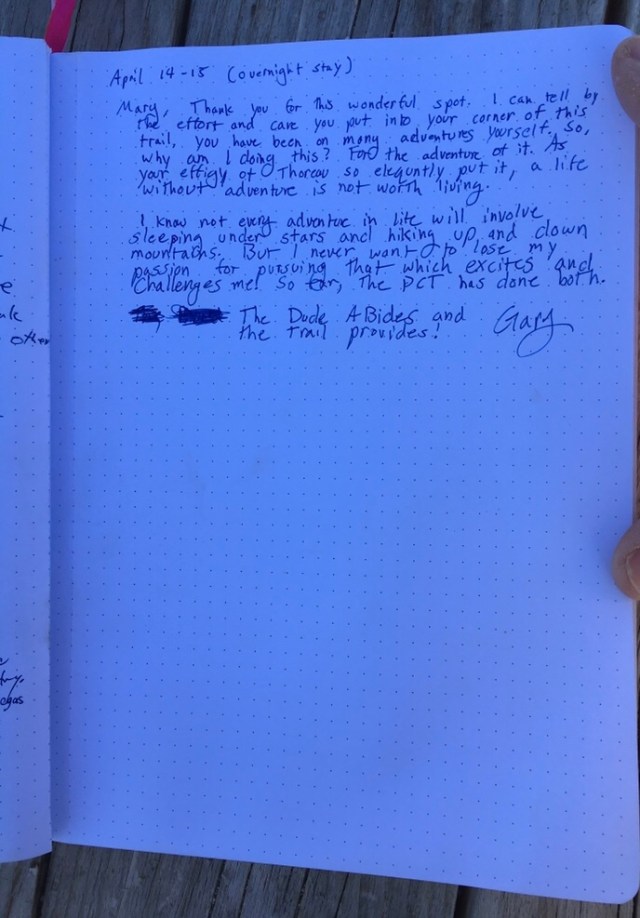 April 14-15 (overnight stay)
Mary, Thank you for this wonderful spot. I can tell by
the effort and care you put into your corner of this
trail, you have been on many adventures yourself. So,
why am I doing this? For the adventure of it. As
your effigy of Thoreau so elequntly put it, a life
without adventure is not worth living.
I know not every adventure in life will involve
sleeping under stars and hiking up and down
mountains. But I never want to lose my
passion for pursuing that which excites and
challenges me! So far, the PCT has done both.
The Dude ABides and
the trail provides!
Gary